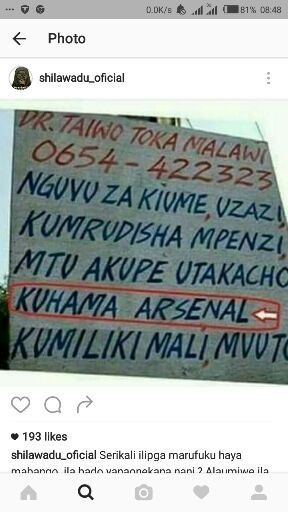 0.0K/s 81% 08:48
Photo
shilawadu_oficial
DR. TAIWO TOKA MALAWI
0654-422323
NGUVU ZA KIUME, UZAZI,
KUMRUDISHA MPENZI,
MTU AKUPE UTAKACHO
KUHAMA ARSENAL
KUMILIKI MALI, MVUTO
193 likes
shilawadu_oficial Serikali ilipga marufuku haya
mabango, ila bado yanaonekana nani ? Alaumiwe ila